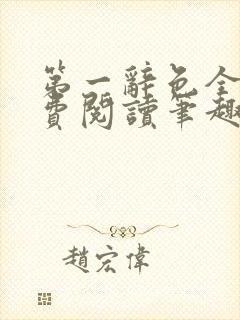 第一辭色全
費閱讀筆趣
趙宏偉